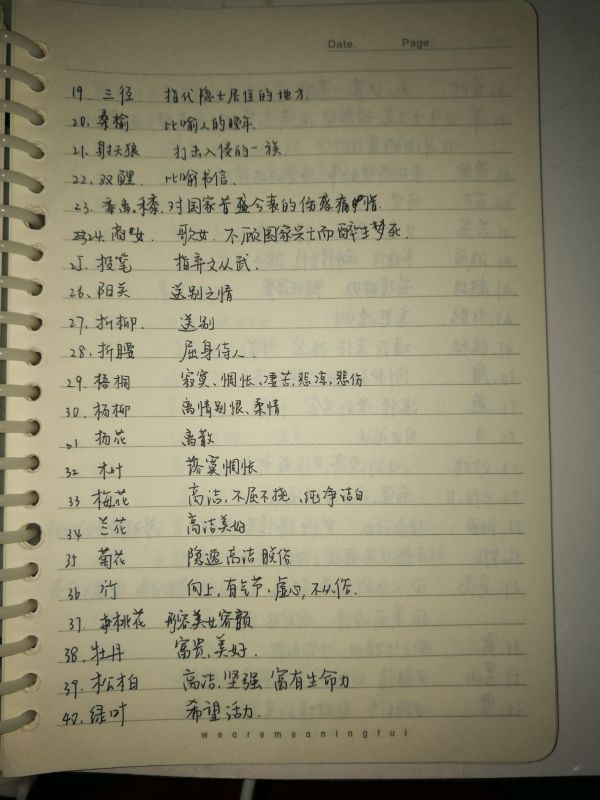 Date. Page.
19. 三径 指代隐士居住的地方.
20. 桑榆 比喻人的晚年.
21. 射天狼 打击入侵的一族.
22. 双鲤. 比喻书信.
23. 黍离, 对国家昔盛今衰的伤感痛惜.
24. 商女. 歌女. 不顾国家兴亡而醉生梦死.
25. 投笔 指弃文从武.
26. 阳关 送别之情
27. 折柳. 送别
28. 折腰 屈身侍人.
29. 梧桐 寂寞、惆怅、凄苦、悲凉、悲伤
30. 杨柳 离情别恨、柔情
31 杨花 离散
32 木叶 落寞惆怅
33 梅花 高洁、不屈不挠、纯净洁白
34 兰花 高洁美好
35 菊花 隐逸高洁脱俗
36 竹 向上,有气节、虚心,不从俗.
37. 桃花 形容美女容颜
38. 牡丹 富贵、美好.
39. 松柏 高洁、坚强 富有生命力
40. 绿叶 希望活力.
wearemeaningful